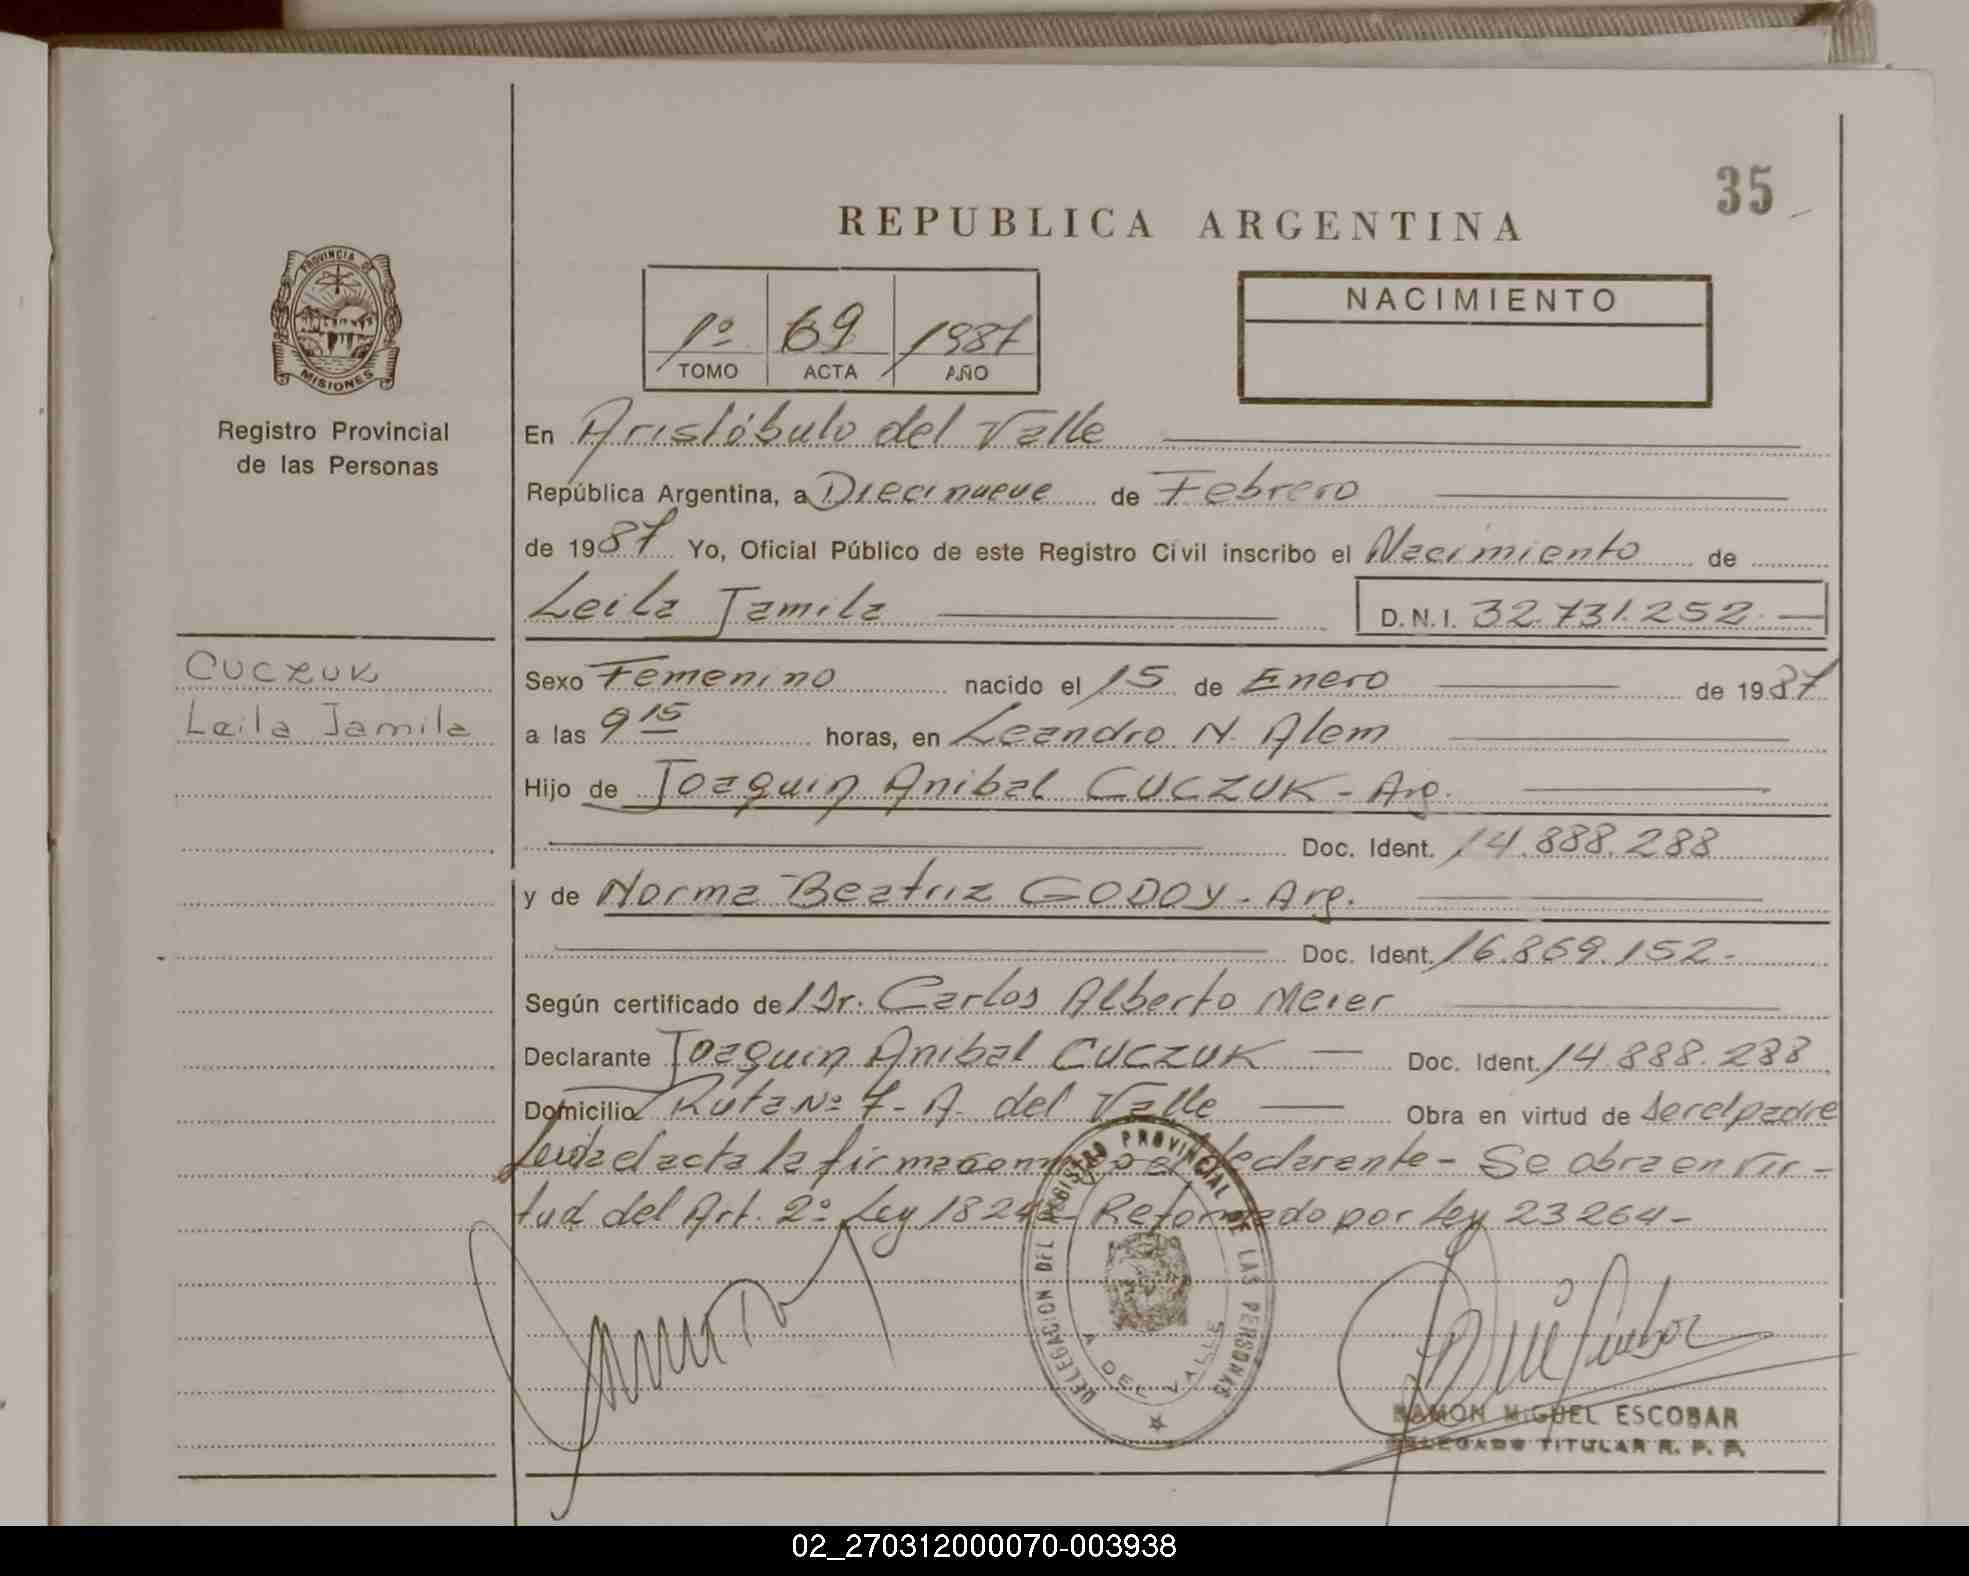 35
REPUBLICA ARGENTINA
PROVINCIA DE
MISIONES
Registro Provincial
de las Personas
1º 69 1987
TOMO ACTA AÑO
NACIMIENTO
En Aristóbulo del Valle
República Argentina, a Diecinueve de Febrero
de 1987 Yo, Oficial Público de este Registro Civil inscribo el Nacimiento de
Leila Jamila D.N.I. 32.731.252
CUCZUK
Leila Jamila
Sexo Femenino nacido el 15 de Enero de 1987
a las 9 15 horas, en Leandro N. Alem
Hijo de Joaquin Anibal CUCZUK - Arg.
Doc. Ident. 14.888.288
y de Norma Beatriz GODOY - Arg.
Doc. Ident. 16.869.152-
Según certificado de l Dr. Carlos Alberto Meier
Declarante Joaquin Anibal CUCZUK Doc. Ident. 14.888.288
Domicilio Ruta Nº 7 - A. del Valle Obra en virtud de ser el padre
Leída el acta la firma el declarante - Se obra en vir-
tud del Art. 2º Ley 18248 Reformado por Ley 23264-
DELEGACION DEL REGISTRO PROVINCIAL DE LAS PERSONAS
A. DEL VALLE
RAMON MIGUEL ESCOBAR
DELEGADO TITULAR R. P. P.
02_270312000070-003938